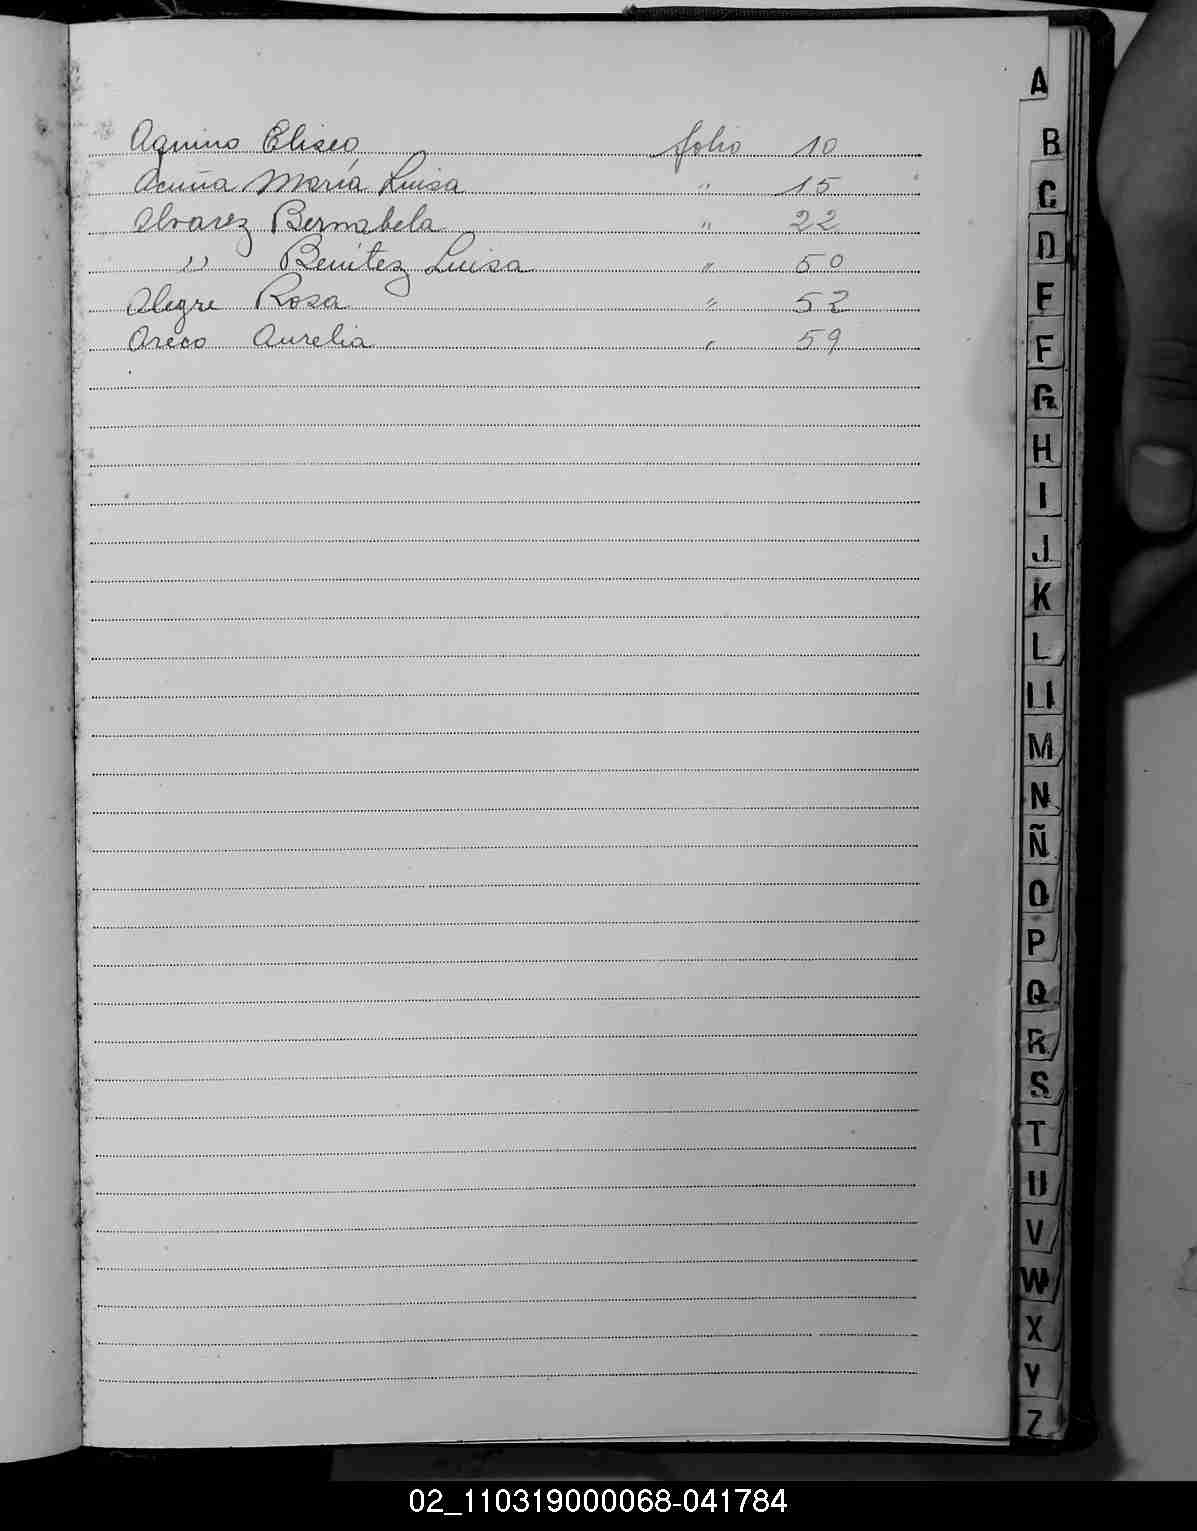 Aquino Eliseo folio 10
Acuña María Luisa " 15
Alvarez Bernabela " 22
" Benítez Luisa " 50
Alegre Rosa " 52
Areco Aurelia " 59
A
B
C
D
E
F
G
H
I
J
K
L
Ll
M
N
Ñ
O
P
Q
R
S
T
U
V
W
X
Y
Z
02_110319000068-041784